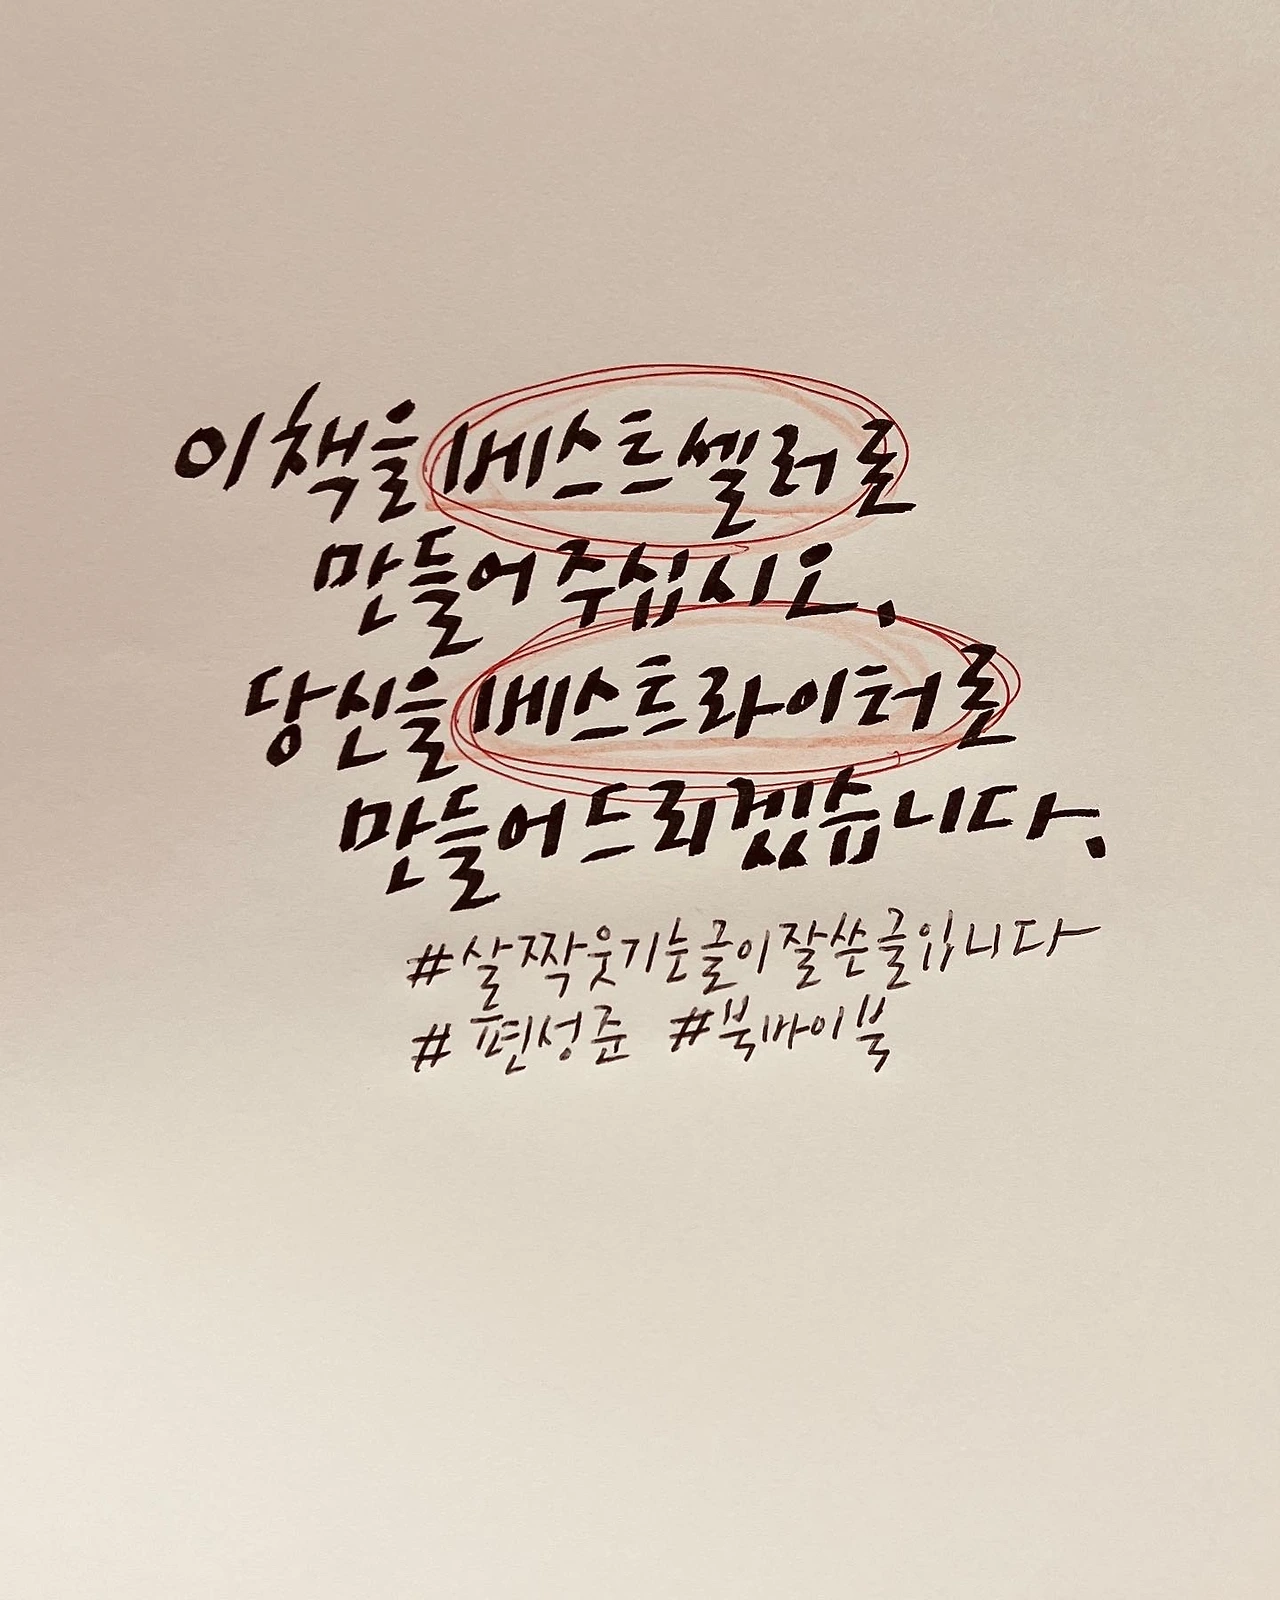 이 책을 베스트셀러로
만들어 주십시오.
당신을 베스트라이터로
만들어 드리겠습니다.
#살짝웃기는글이잘쓴글입니다
#편성준 #북바이북